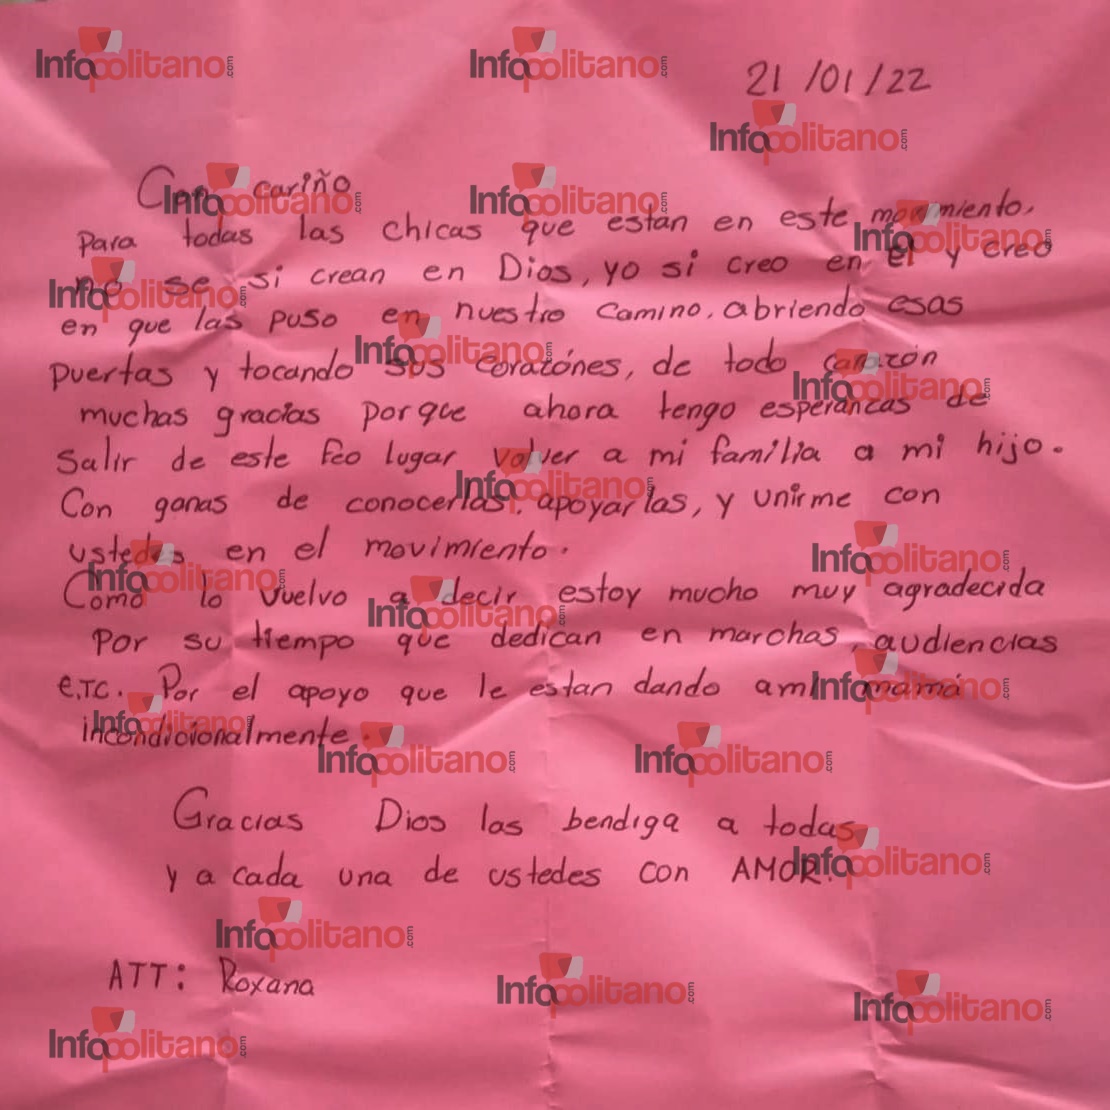 21/01/22
Con cariño
para todas las chicas que estan en este movimiento,
no se si crean en Dios, yo si creo en el y creo
en que las puso en nuestro camino. abriendo esas
puertas y tocando sus corazónes, de todo corazón
muchas gracias porque ahora tengo esperanzas de
salir de este feo lugar volver a mi familia a mi hijo.
Con ganas de conocerlas, apoyarlas, y unirme con
ustedes en el movimiento.
Como lo vuelvo a decir estoy mucho muy agradecida
por su tiempo que dedican en marchas, audiencias
e.TC. Por el apoyo que le estan dando ami mamá
incondicionalmente.
Gracias Dios las bendiga a todas
y a cada una de ustedes con AMOR.
ATT: Roxana
Infopolitano.com
Infopolitano.com
Infopolitano.com
Infopolitano.com
Infopolitano.com
Infopolitano.com
Infopolitano.com
Infopolitano.com
Infopolitano.com
Infopolitano.com
Infopolitano.com
Infopolitano.com
Infopolitano.com
Infopolitano.com
Infopolitano.com
Infopolitano.com
Infopolitano.com
Infopolitano.com
Infopolitano.com
Infopolitano.com
Infopolitano.com
Infopolitano.com